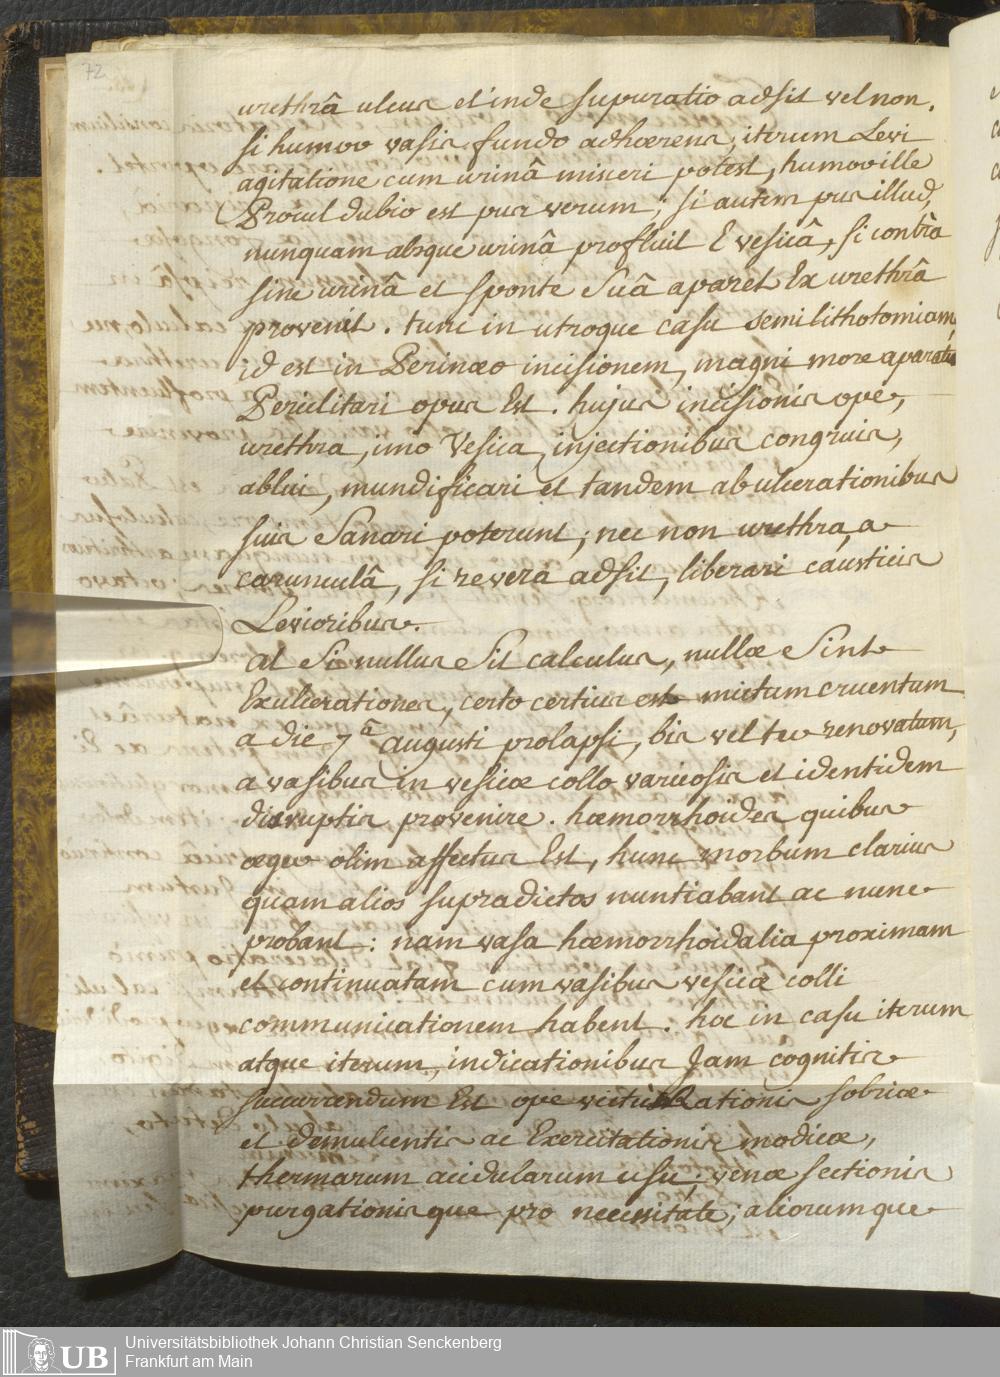 72
urethrâ ulcus et inde supuratio adsit vel non.
si humor vasis fundo adhœrens, iterum Levi
agitatione cum urinâ misceri potest, humor ille
Procul dubio est pus verum; si autem pus illud,
nunquam absque urinâ profluit E vesicâ, si contrâ
sine urinâ et sponte suâ aparet Ex urethrâ
provenit. tunc in utroque casu semilithotomiam,
id est in Perinœo incisionem, magni more aparatus
Periclitari opus Est. hujus incisionis ope,
urethra, imo Vesica, injectionibus congruis,
ablui, mundificari et tandem ab ulcerationibus
suis Sanari poterunt; nec non urethra, a
carunculâ, si revera adsit, liberari causticis
Levioribus.
at Si nullus Sit calculus, nullœ Sint
Exulcerationes, certo certius est mictum cruentum
a die 7â augusti prolapsi, bis vel ter renovatum,
a vasibus in vesicœ collo varicosis et identidem
disruptis provenire. hœmorrhoides quibus
œger olim affectus Est, hunc morbum clarius
quam alios supradictos nuntiabant ac nunc
probant: nam vasa hœmorrhoidalia proximam
et continuatam cum vasibus vesicœ colli
communicationem habent. hoc in casu iterum
atque iterum, indicationibus Jam cognitis
succurrendum Est ope victûs Rationis sobriœ
et demulcentis ac Exercitationis modicœ,
thermarum acidularum usu; venœ sectionis
purgationisque pro necessitate; aliorumque
Universitätsbibliothek Johann Christian Senckenberg
Frankfurt am Main
UB